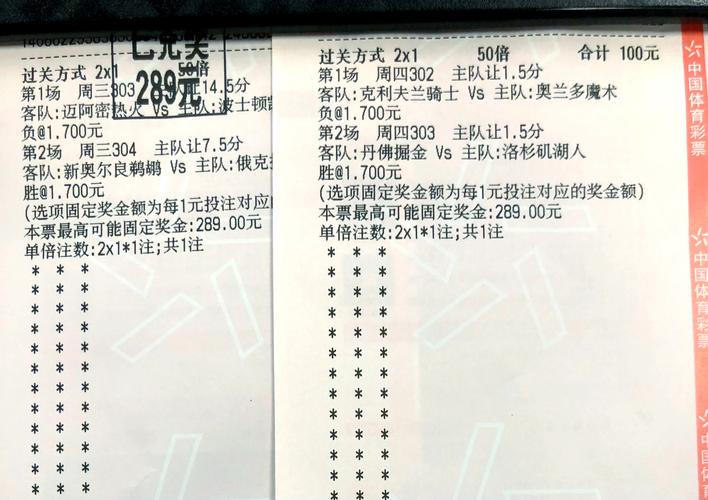 已兑奖
289元
过关方式 2x1 50倍
第1场 周三303 让14.5分
客队:迈阿密热火 Vs 主队:波士顿
负@1.700元
第2场 周三304 主队让7.5分
客队:新奥尔良鹈鹕 Vs 主队:俄克
胜@1.700元
(选项固定奖金额为每1元投注对应的奖
本票最高可能固定奖金:289.00元
单倍注数:2x1*1注;共1注
* * *
* * *
* * *
* * *
* * *
* * *
* * *
* * *
* * *
* * *
* * *
* * *
过关方式 2x1 50倍 合计 100元
第1场 周四302 主队让1.5分
客队:克利夫兰骑士 Vs 主队:奥兰多魔术
负@1.700元
第2场 周四303 主队让1.5分
客队:丹佛掘金 Vs 主队:洛杉矶湖人
胜@1.700元
(选项固定奖金额为每1元投注对应的奖金额)
本票最高可能固定奖金:289.00元
单倍注数:2x1*1注;共1注
* * *
* * *
* * *
* * *
* * *
* * *
* * *
* * *
* * *
* * *
* * *
* * *
* * *
中国体育彩票
中国体育彩票
中国体育